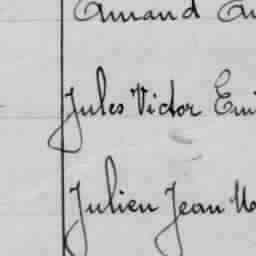 Amand
Jules Victor Emi
Julien Jean Ma